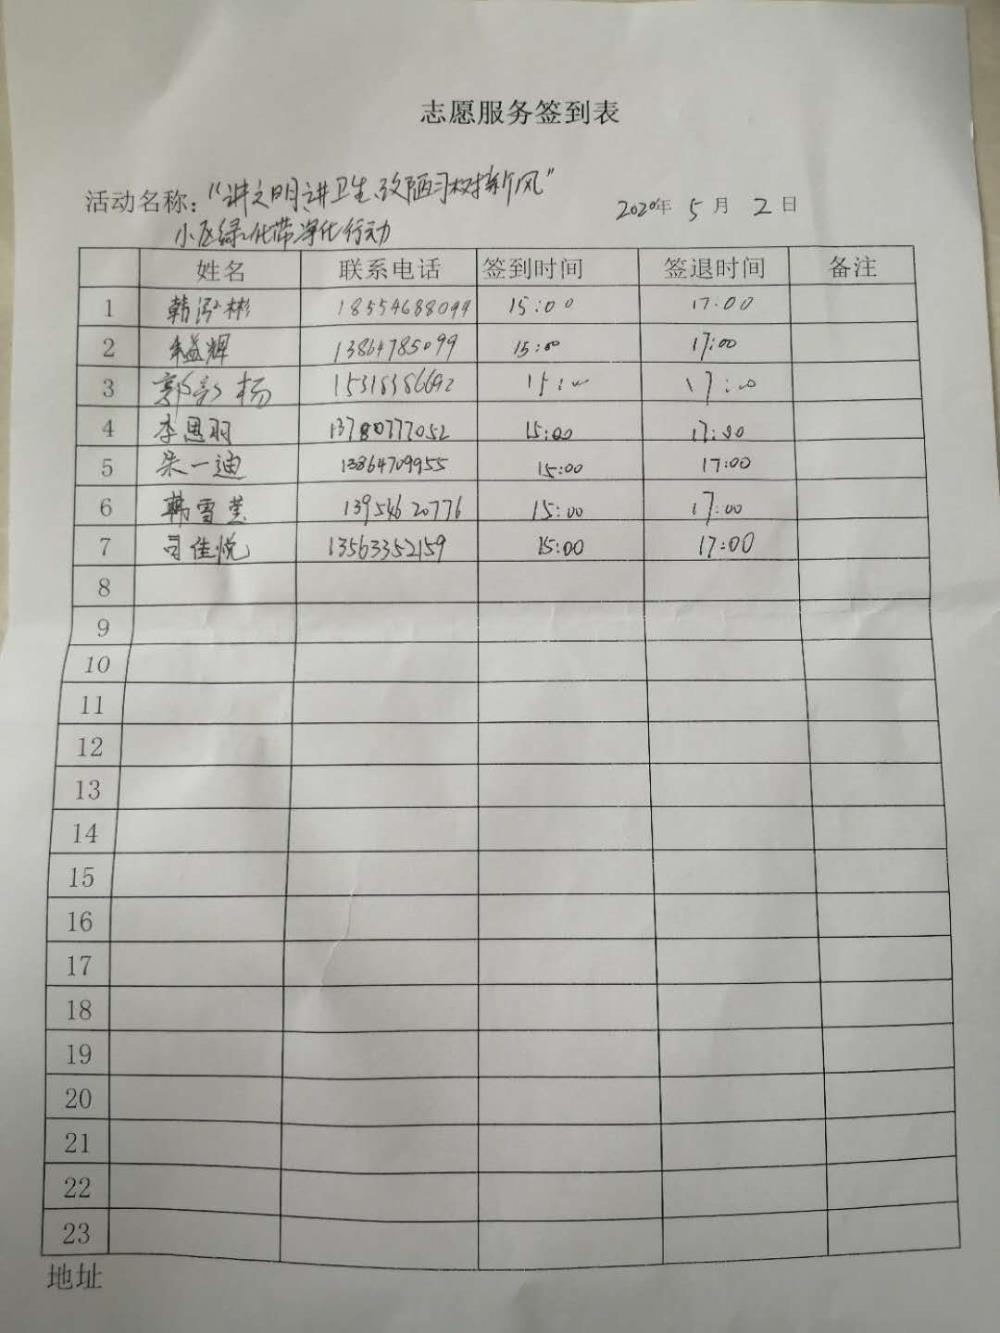 志愿服务签到表
活动名称："讲文明讲卫生、改陋习树新风"
2020年 5 月 2 日
小区绿化带净化行动
姓名 联系电话 签到时间 签退时间 备注
1 韩泓彬 18554688099 15:00 17:00
2 朱益辉 13864785099 15:00 17:00
3 郭 杨 15318386692 15:00 17:00
4 李思羽 13780777052 15:00 17:00
5 朱一迪 13864709955 15:00 17:00
6 韩雪莹 13954620776 15:00 17:00
7 司佳悦 13563352159 15:00 17:00
8
9
10
11
12
13
14
15
16
17
18
19
20
21
22
23
地址